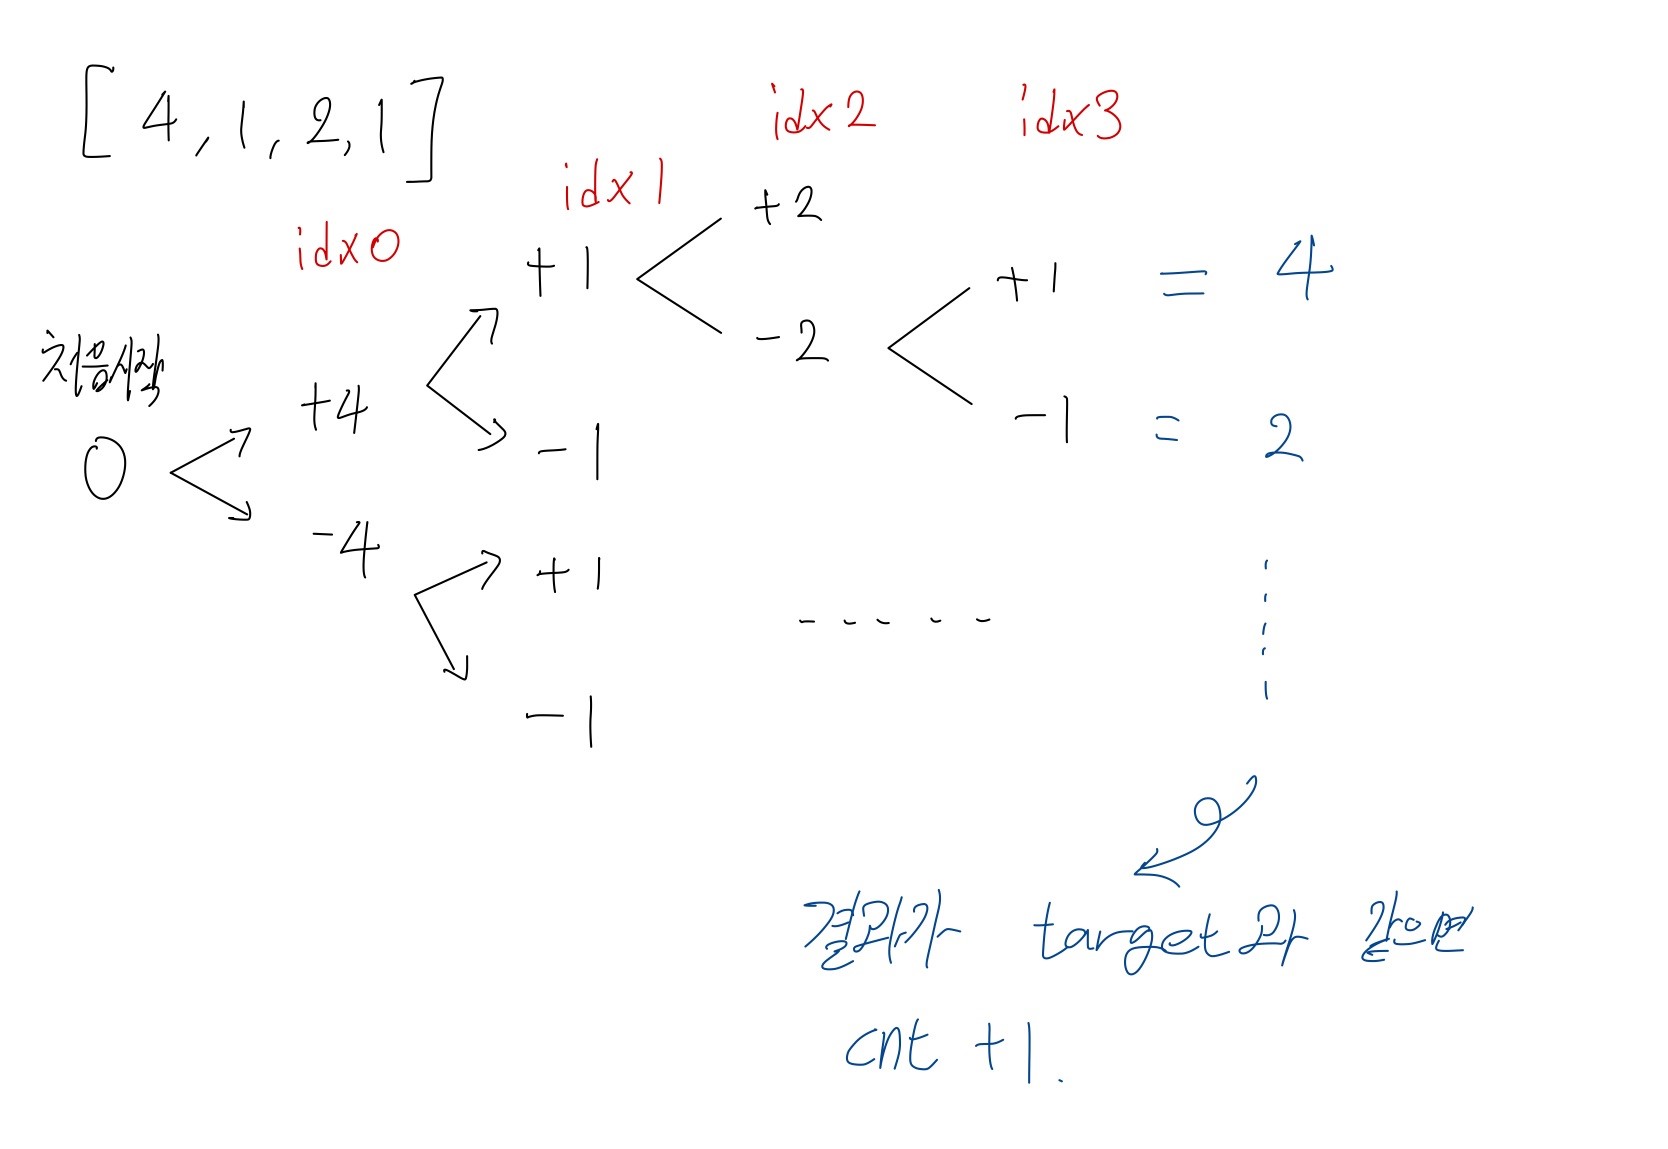 [ 4, 1, 2, 1 ]
idx 0
idx 1
idx 2
idx 3
처음시작
0
+4
-4
+1
-1
+1
-1
+2
-2
+1 = 4
-1 = 2
결과가 target과 같으면
cnt +1.